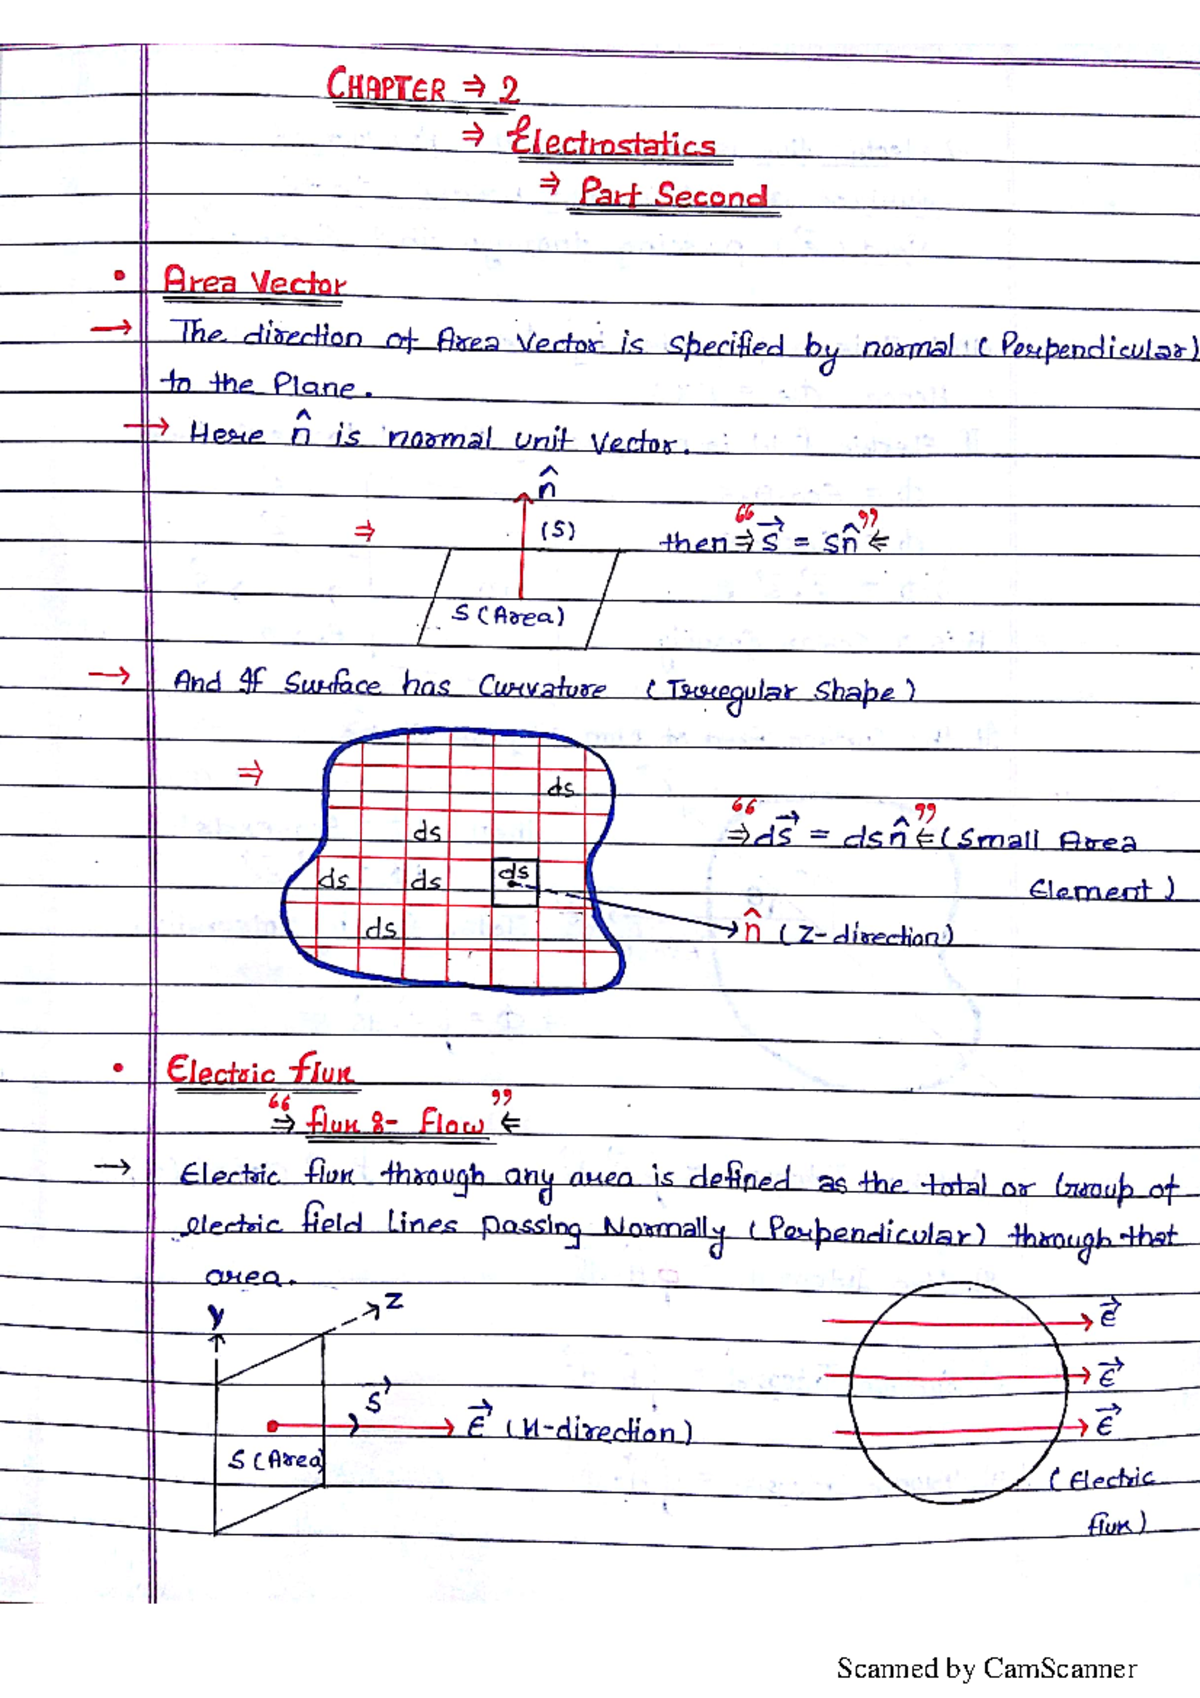 CHAPTER ⇒ 2
⇒ Electrostatics
⇒ Part Second
• Area Vector
→ The direction of Area Vector is specified by normal (Perpendicular)
to the Plane.
→ Here n̂ is normal unit Vector.
n̂
⇒ (S) then "⇒ S⃗ = Sn̂ ⇐"
S (Area)
→ And If Surface has Curvature (Irregular Shape)
⇒ ds
ds "⇒ ds⃗ = dsn̂ ⇐" (Small Area
ds ds ds Element)
ds → n̂ (Z-direction)
• Electric flux
"⇒ flux :- Flow ⇐"
→ Electric flux through any area is defined as the total or Group of
electric field lines passing Normally (Perpendicular) through that
area.
y Z E⃗
S⃗ E⃗
E⃗ (x-direction) E⃗
S (Area) (Electric
flux)
Scanned by CamScanner